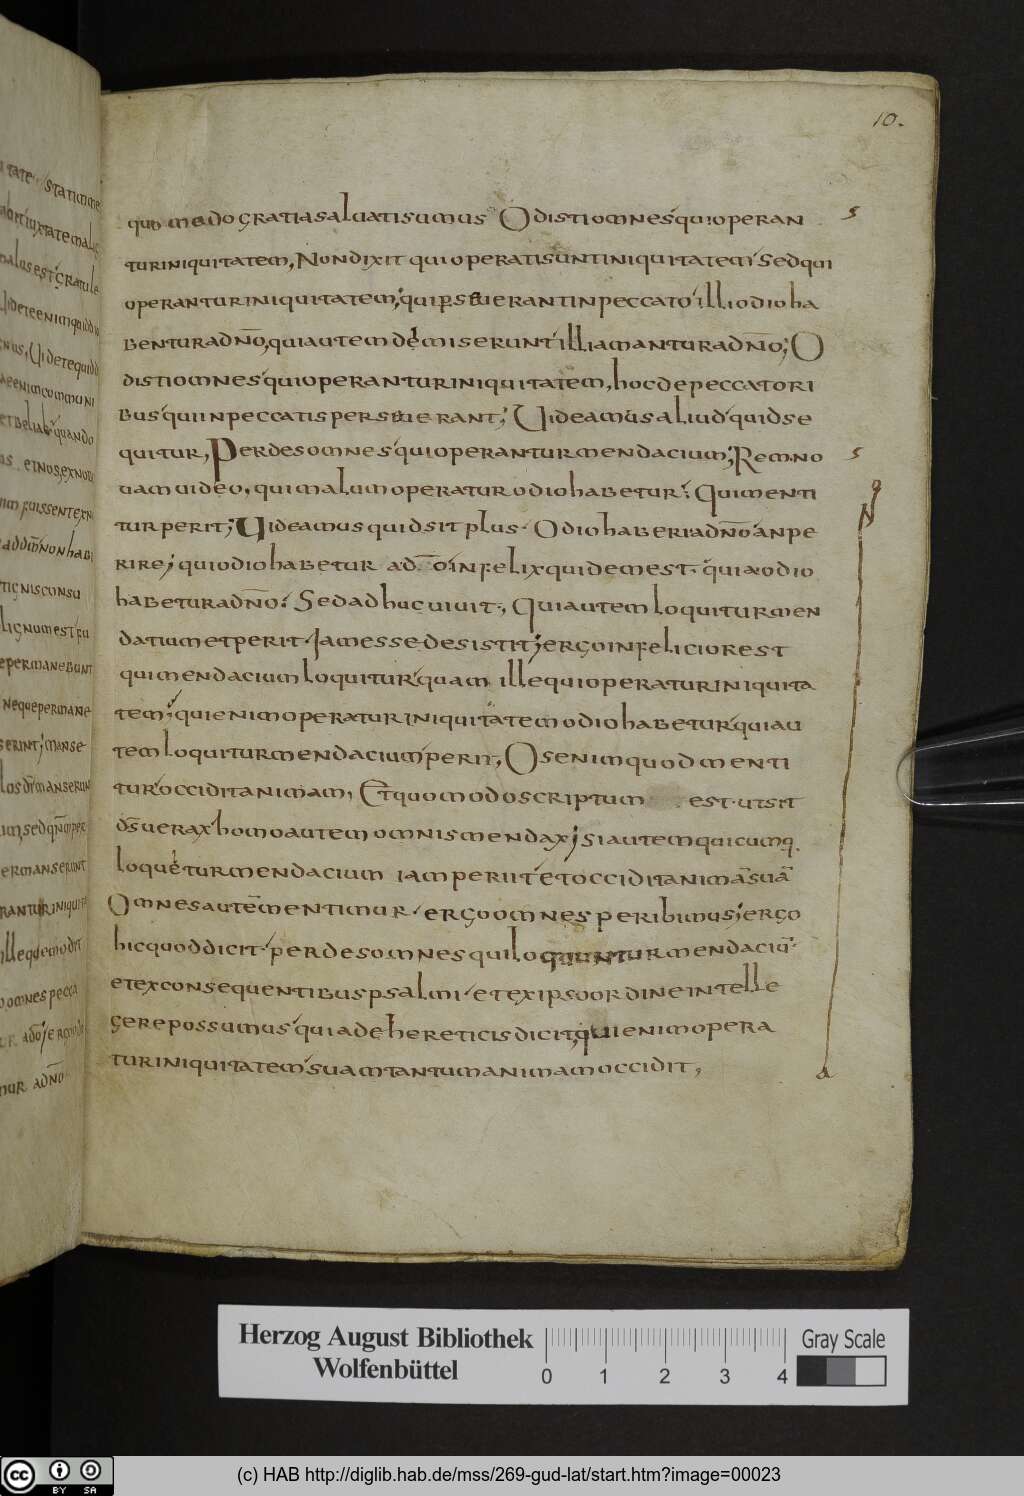 10.
quo modo gratia saluati sumus Odisti omnes qui operan
tur iniquitatem, Non dixit qui operati sunt iniquitatem sed qui
operantur iniquitatem, qui perseuerant in peccato illi odio ha
bentur a dño, qui autem demiserunt illi amantur a dño; O
disti omnes qui operantur iniquitatem, hoc de peccatori
bus qui in peccatis perseuerant; Uideamus aliud quid se
quitur, Perdes omnes qui operantur mendacium; Rem no
uam uideo, qui malum operatur odio habetur; Qui menti
tur perit; Uideamus quid sit plus. Odio haberi a dño an pe
rire; qui odio habetur a d̄o infelix quidem est. quia odio
habetur a dño; Sed adhuc uiuit; Qui autem loquitur men
datium et perit. Iam esse desistit; ergo infelicior est
qui mendacium loquitur quam ille qui operatur iniquita
tem; qui enim operatur iniquitatem odio habetur qui au
tem loquitur mendacium perit, Os enim quod menti
tur occidit animam, Et quomodo scriptum est. ut sit
d̄s uerax homo autem omnis mendax; si autem quicumq.
loquetur mendacium iam periit et occidit animā suā
Omnes autem mentimur. ergo omnes peribimus; ergo
hic quod dicit. perdes omnes qui loquuntur mendaciū.
et ex consequentibus psalmi. et ex ipso ordine intelle
gere possumus quia de hereticis dicit, qui enim opera
tur iniquitatem suam tantum animam occidit,
Herzog August Bibliothek
Wolfenbüttel
0 1 2 3 4
Gray Scale
cc BY SA
(c) HAB http://diglib.hab.de/mss/269-gud-lat/start.htm?image=00023